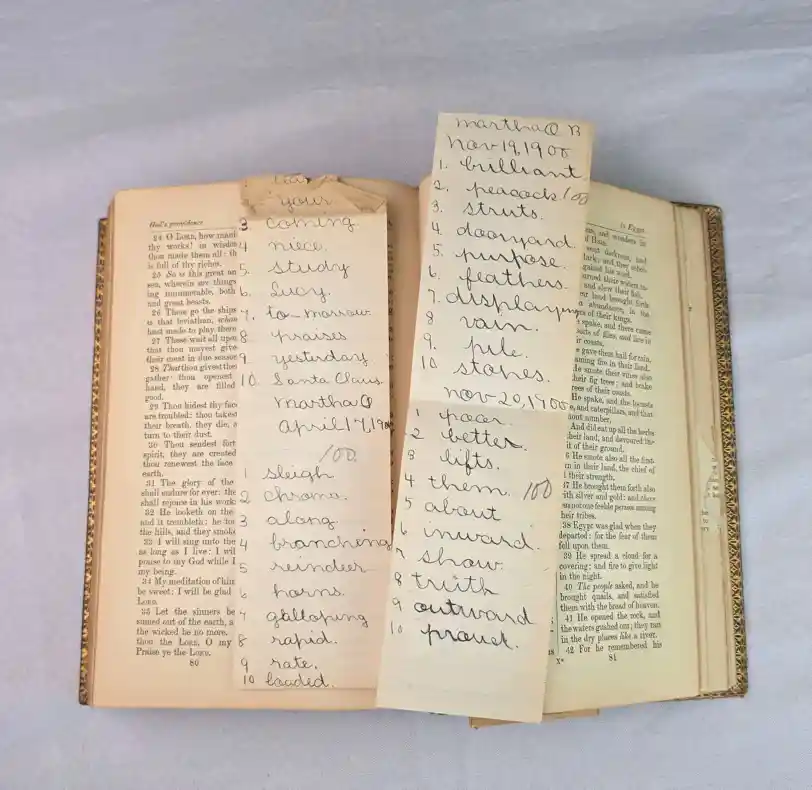 God's providence
24 O LORD, how mani
thy works! in wisdom
thou made them all: th
is full of thy riches.
25 So is this great an
sea, wherein are things
ing innumerable, both
and great beasts.
26 There go the ships
is that leviathan, whom
hast made to play there
27 These wait all upon
that thou mayest give
their meat in due season
28 That thou givest the
gather: thou openest
hand, they are filled
good.
29 Thou hidest thy face
are troubled: thou takest
their breath, they die, a
turn to their dust.
30 Thou sendest fort
spirit, they are created
thou renewest the face
earth.
31 The glory of the
shall endure for ever: the
shall rejoice in his works
32 He looketh on the
and it trembleth: he to
the hills, and they smoke
33 I will sing unto the
as long as I live: I wil
praise to my God while I
my being.
34 My meditation of him
be sweet: I will be glad
LORD.
35 Let the sinners be
sumed out of the earth, a
the wicked be no more.
thou the LORD, O my
Praise ye the LORD.
80
your
3. coming
4 niece.
5. study
6. Lucy.
7. to-morrow
8 praises
9 yesterday
10. Santa Claus.
Martha Q
April 17, 19
100
1 sleigh
2 chroma.
3 along
4 branching
5 reindeer
6 horns.
7 galloping
8 rapid.
9 rate.
10 loaded.
Martha Q B
Nov 19, 1900
1. brilliant
2. peacock 100
3. struts.
4. dooryard.
5. purpose.
6. feathers.
7. displaying
8 vain.
9. pile.
10 stones.
Nov 20, 1900
1 poor.
2 better.
3 lifts.
4 them. 100
5 about
6 inward.
7 show.
8 truth
9 outward
10 proud.
in EGYPT.
and wonders in
of Ham.
sent darkness, and
dark; and they rebel-
against his word.
turned their waters in-
and slew their fish.
land brought forth
abundance, in the
of their kings.
spake, and there came
sorts of flies, and lice in
coasts.
gave them hail for rain,
flaming fire in their land.
He smote their vines also
their fig trees; and brake
trees of their coasts.
He spake, and the locusts
and caterpillars, and that
out number,
And did eat up all the herbs
their land, and devoured the
it of their ground.
6 He smote also all the first-
in their land, the chief of
their strength.
37 He brought them forth also
with silver and gold: and there
was not one feeble person among
their tribes.
38 Egypt was glad when they
departed: for the fear of them
fell upon them.
39 He spread a cloud for a
covering; and fire to give light
in the night.
40 The people asked, and he
brought quails, and satisfied
them with the bread of heaven.
41 He opened the rock, and
the waters gushed out; they ran
in the dry places like a river.
42 For he remembered his
81